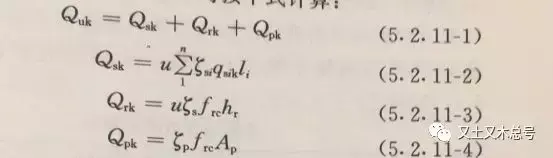 下式计算：
Q_uk = Q_sk + Q_rk + Q_pk (5.2.11-1)
Q_sk = u∑_1^n ζ_si q_sik l_i (5.2.11-2)
Q_rk = uζ_s f_rc h_r (5.2.11-3)
Q_pk = ζ_p f_rc A_p (5.2.11-4)
又土又木总号